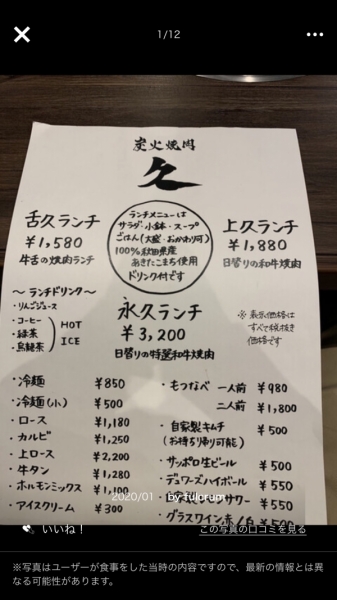 1/12
炭火焼肉
久
舌久ランチ
¥1,580
牛舌の焼肉ランチ
ランチメニューは
サラダ・小鉢・スープ
ごはん(大盛・おかわり可)
100%秋田県産
あきたこまち使用
ドリンク付です
上久ランチ
¥1,880
日替りの和牛焼肉
~ランチドリンク~
・りんごジュース
・コーヒー
・緑茶
・烏龍茶
HOT
ICE
永久ランチ
¥3,200
日替りの特選和牛焼肉
※表示価格は
すべて税抜き
価格です
・冷麺 ¥850
・冷麺(小) ¥500
・ロース ¥1,180
・カルビ ¥1,250
・上ロース ¥2,200
・牛タン ¥1,280
・ホルモンミックス ¥1,100
・アイスクリーム ¥300
・もつなべ 一人前 ¥980
二人前 ¥1,800
・自家製キムチ ¥500
(お持ち帰り可能)
・サッポロ生ビール ¥500
・デュワーズハイボール ¥550
サワー ¥550
・グラスワイン 赤/白 ¥500
2020/01 by fulorum
いいね!
この写真の口コミを見る
※写真はユーザーが食事をした当時の内容ですので、最新の情報とは異
なる可能性があります。